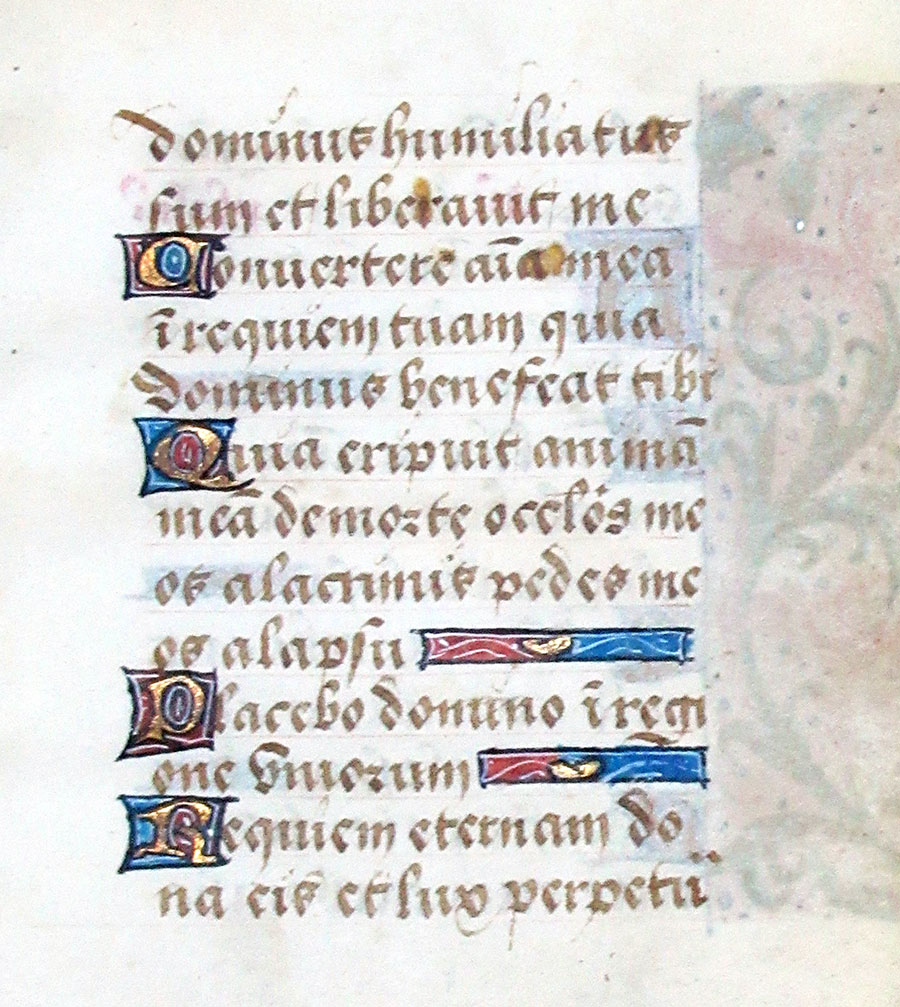 dominus humiliatus
sum et liberauit me
Conuertere aīa mea
ī requiem tuam quia
dominus benefecat tibi
Quia eripuit animā
meā de morte ocƚos me
os a lacrimis pedes me
os a lapsu
Placebo domino ī regi
one viuorum
Requiem eternam do
na eis et lux perpetu